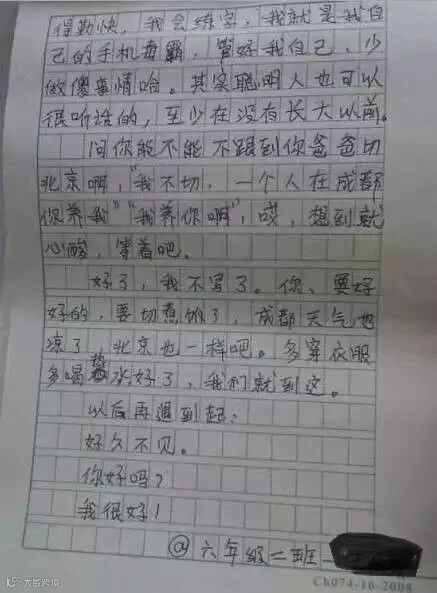 得勤快，我会练字，我就是我自
己的手机毒霸，管好我自己，少
做傻事情哈。其实聪明人也可以
很听话的，至少在没有长大以前。
问你能不能不跟到你爸爸切
北京啊，“我不切，一个人在成都
你养我”“我养你啊”，哎，想到就
心酸，等着吧。
好了，我不写了。你、要好
好的，要切煮饭了，成都天气也
凉了，北京也一样吧。多穿衣服
多喝热水好了，我们就到这。
以后再遇到起：
好久不见。
你好吗？
我很好！
@六年级二班
Ch074-16-2008
大数跨境